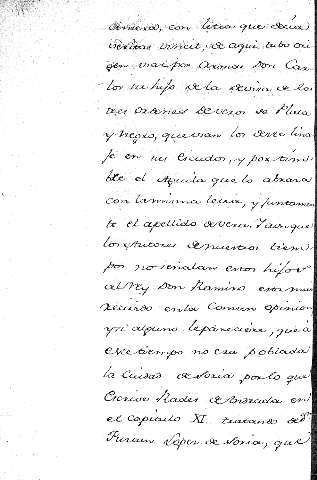 con letra que decia
veritas vincit, de aqui tubo ori
gen Don Car
los su hijo de la devisa de los
tres ordenes de veros de Plata
y Negro, que usan los de este lina
je en sus escudos, y por tim
ble el Aguila que lo abraza
con la misma letra, y juntamen
te el apellido de vera. Y aunque
los Autores de nuestros tiem
pos no señalan estos hijos
al Rey Don Ramiro esta mui
recivido en la Comun opinion
y si alguno le pareciere, que a
este tiempo no era poblada
la Ciudad de Soria, por lo que
Escrive Rades de Andrada en
el capitulo XI. tratando de Dn
Fortun Lopez de Soria, que